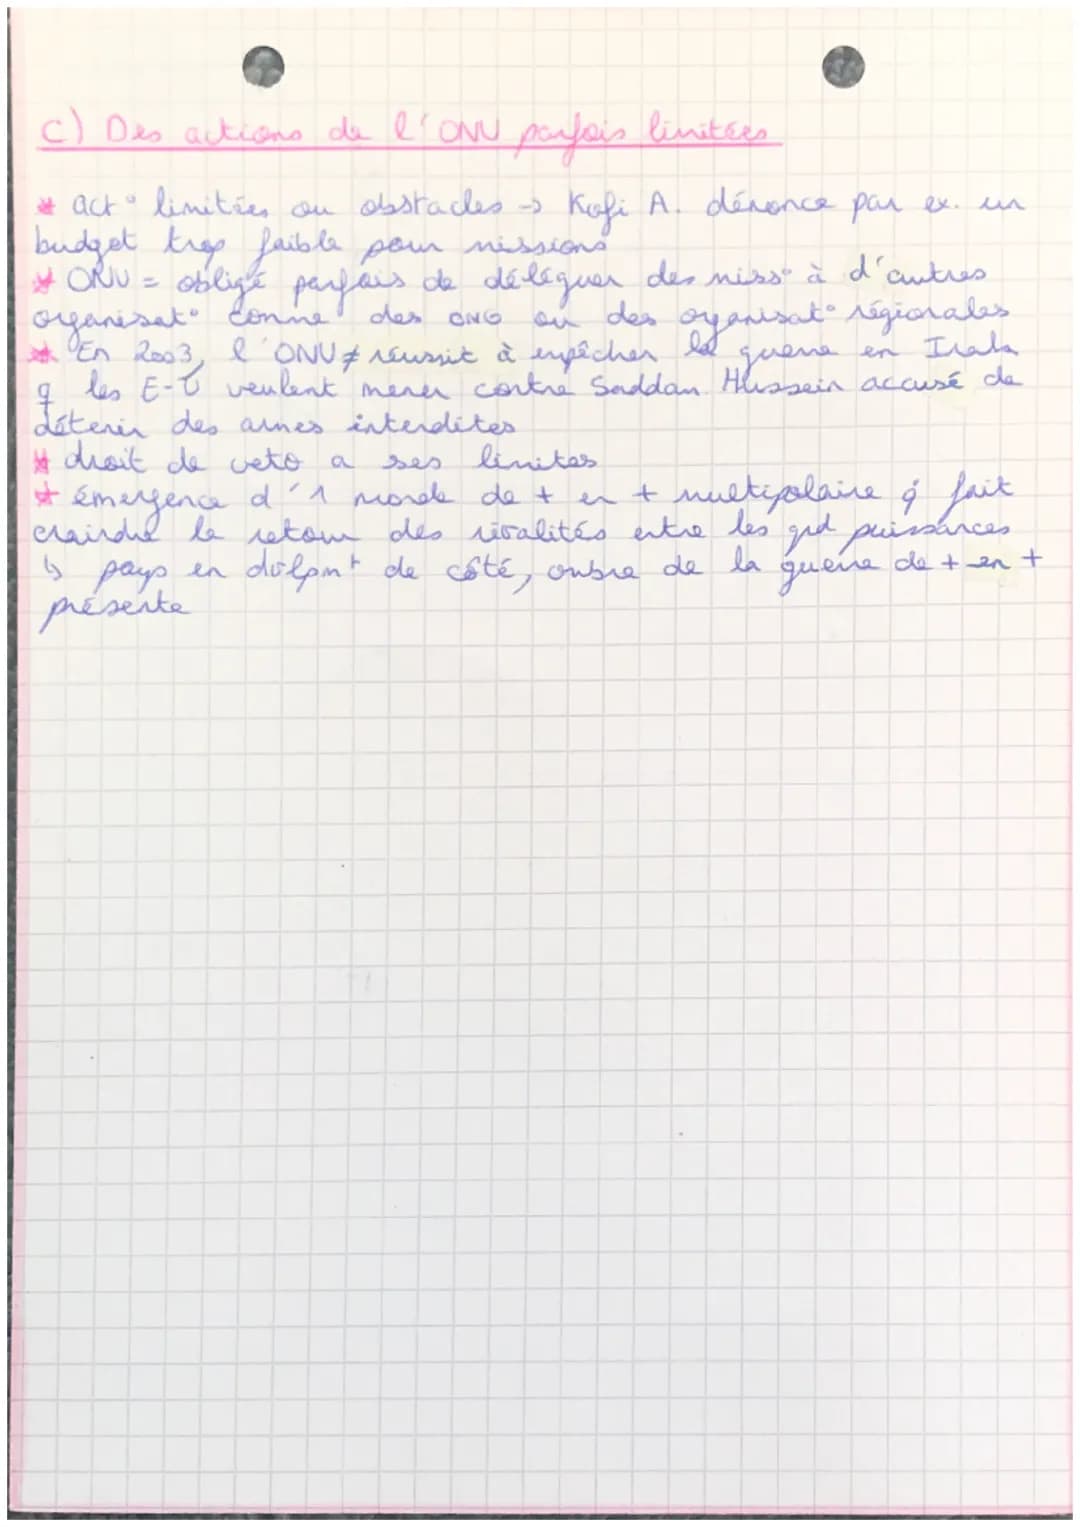 C) Des actions de l'ONU parfois limitées
* act° limitées ou obstacles → Kofi A. dénonce par ex. un
budget trop faible pour missions
* ONU = obligé parfois de déléguer des miss° à d'autres
organisat° comme des ONG ou des organisat° régionales
* En 2003, l'ONU ≠ réussit à empêcher la guerre en Irak
q les E-U veulent mener contre Saddam Hussein accusé de
détenir des armes interdites
* droit de veto a ses limites
* émergence d'1 monde de + en + multipolaire q̂ fait
craindre le retour des rivalités entre les grd puissances
↳ pays en dvlpmt de côté, ombre de la guerre de + en +
présente